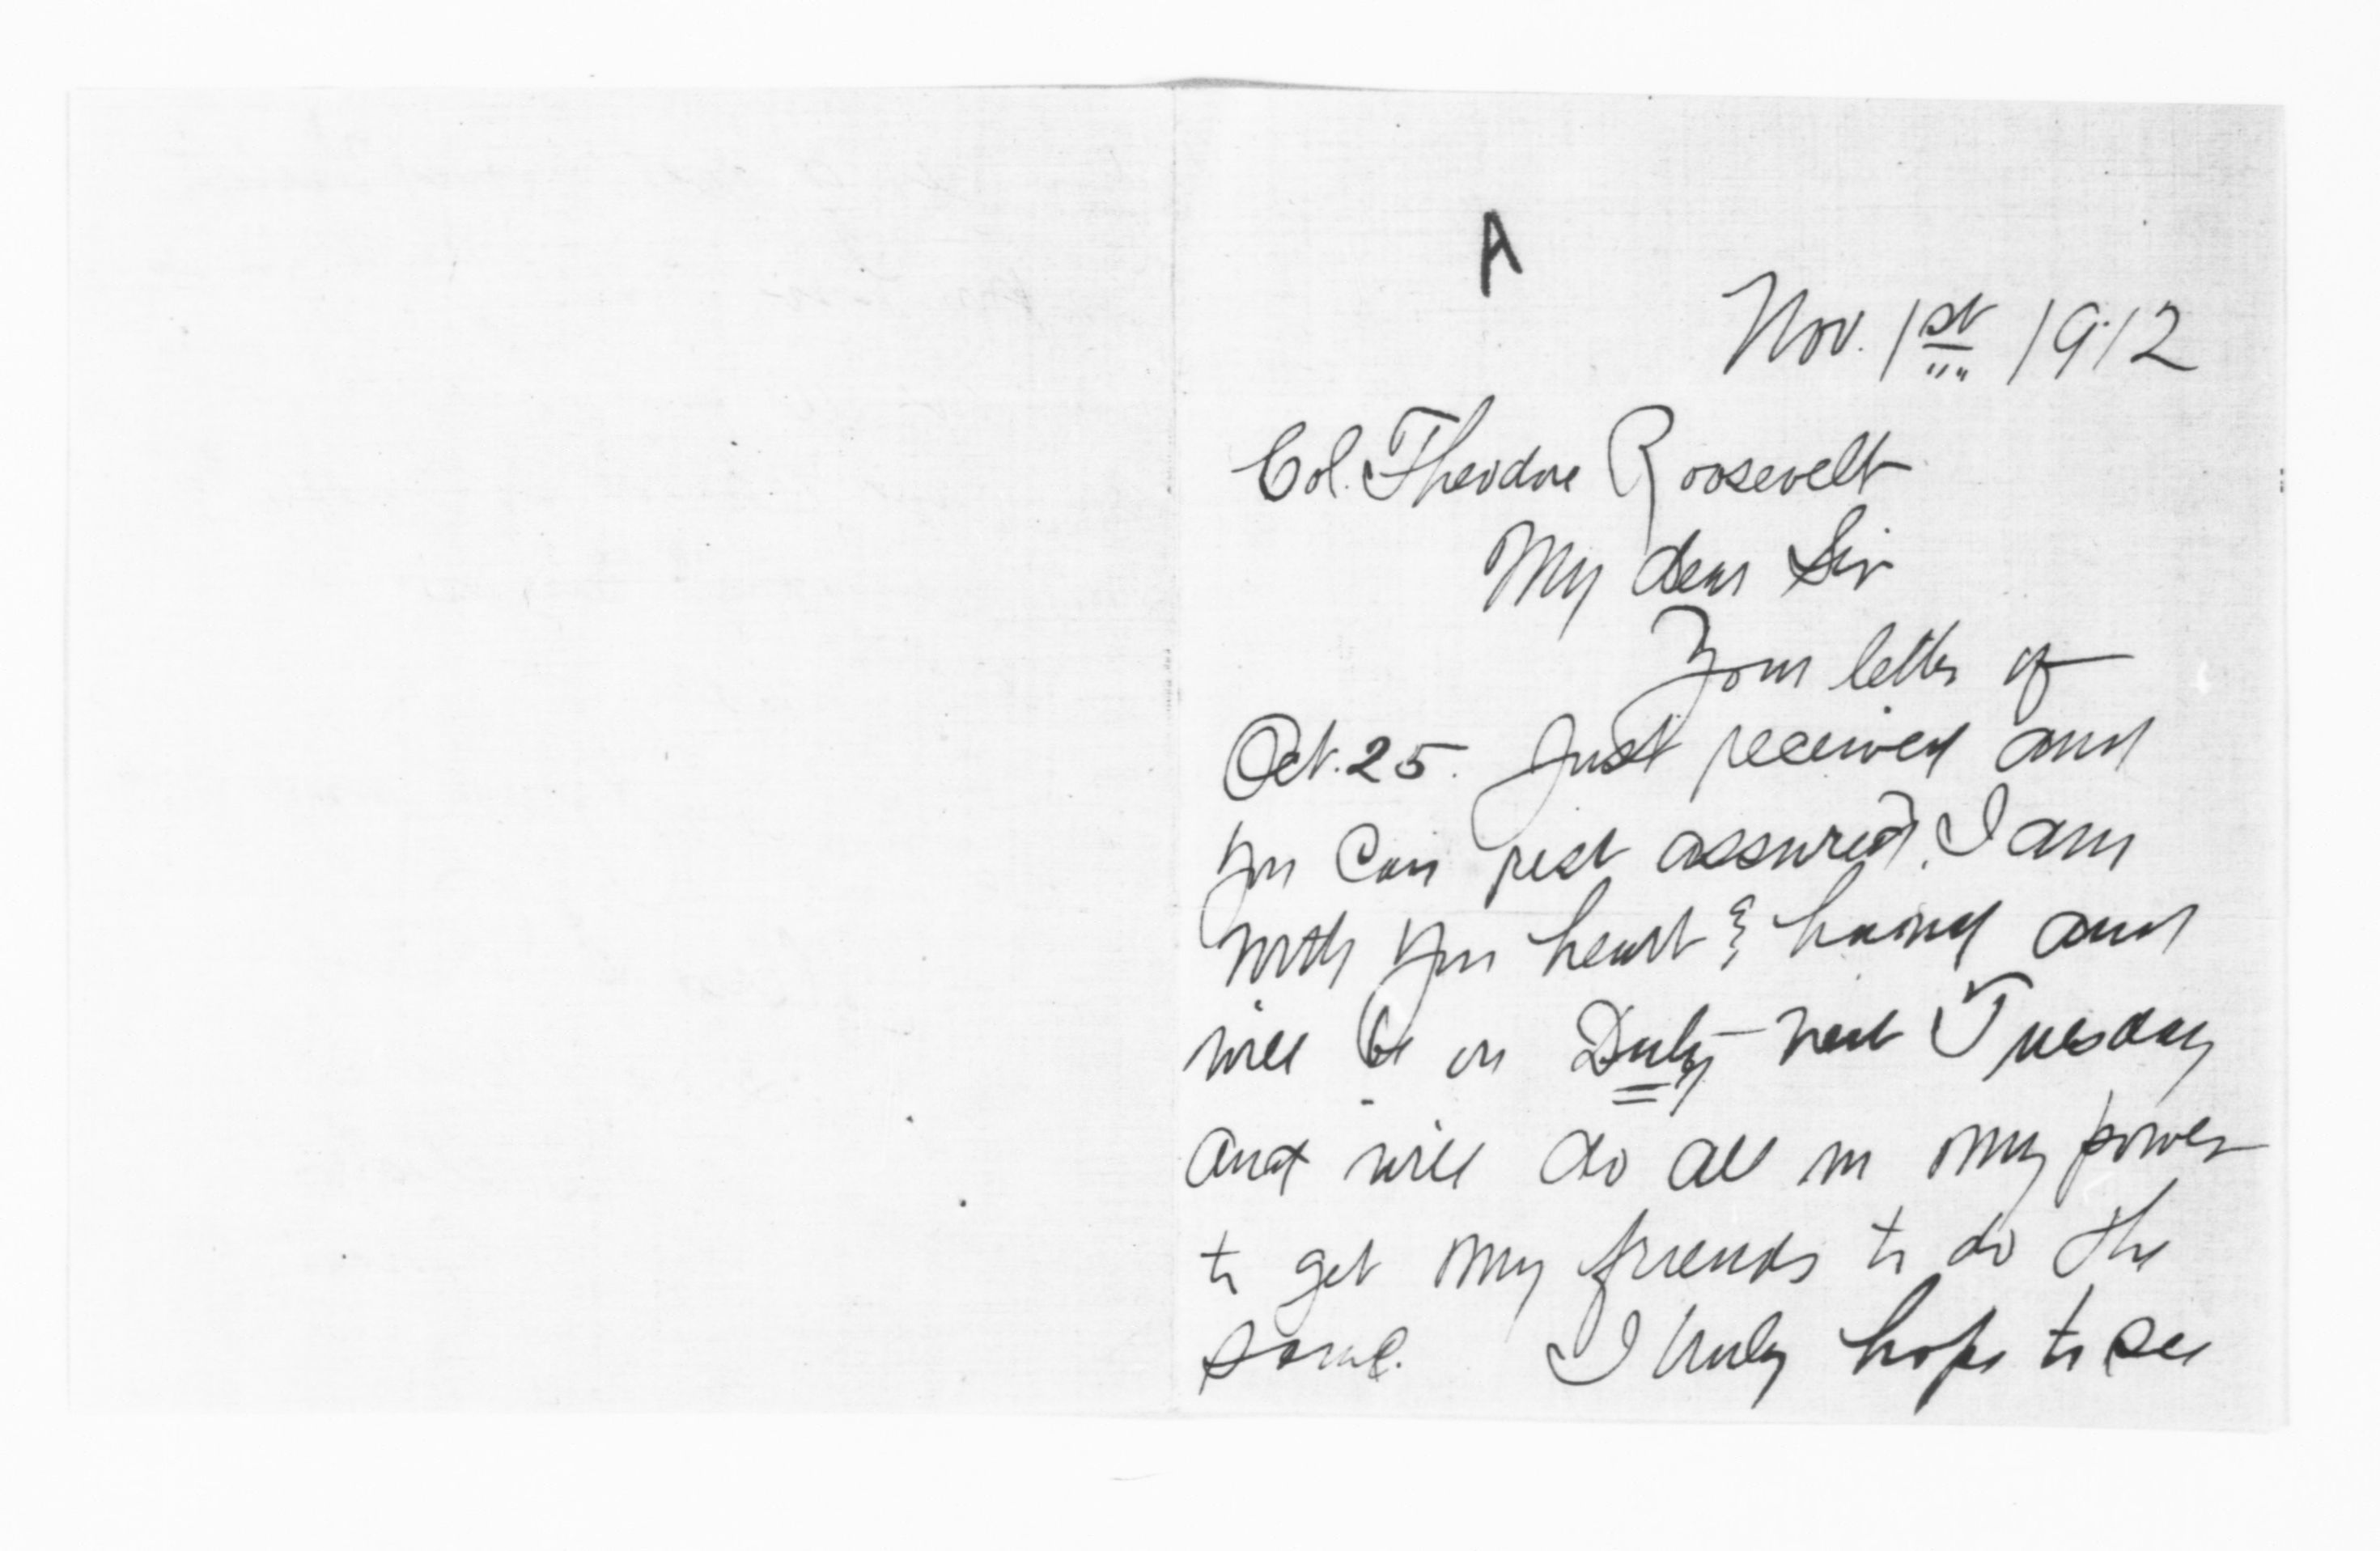 A
Nov. 1st 1912
Col. Theodore Roosevelt
My dear Sir
Your letter of
Oct. 25. Just received and
you can rest assured. I am
with you heart & hand and
will be on Duty next Tuesday
and will do all in my power
to get my friends to do the
same. I truly hope to see